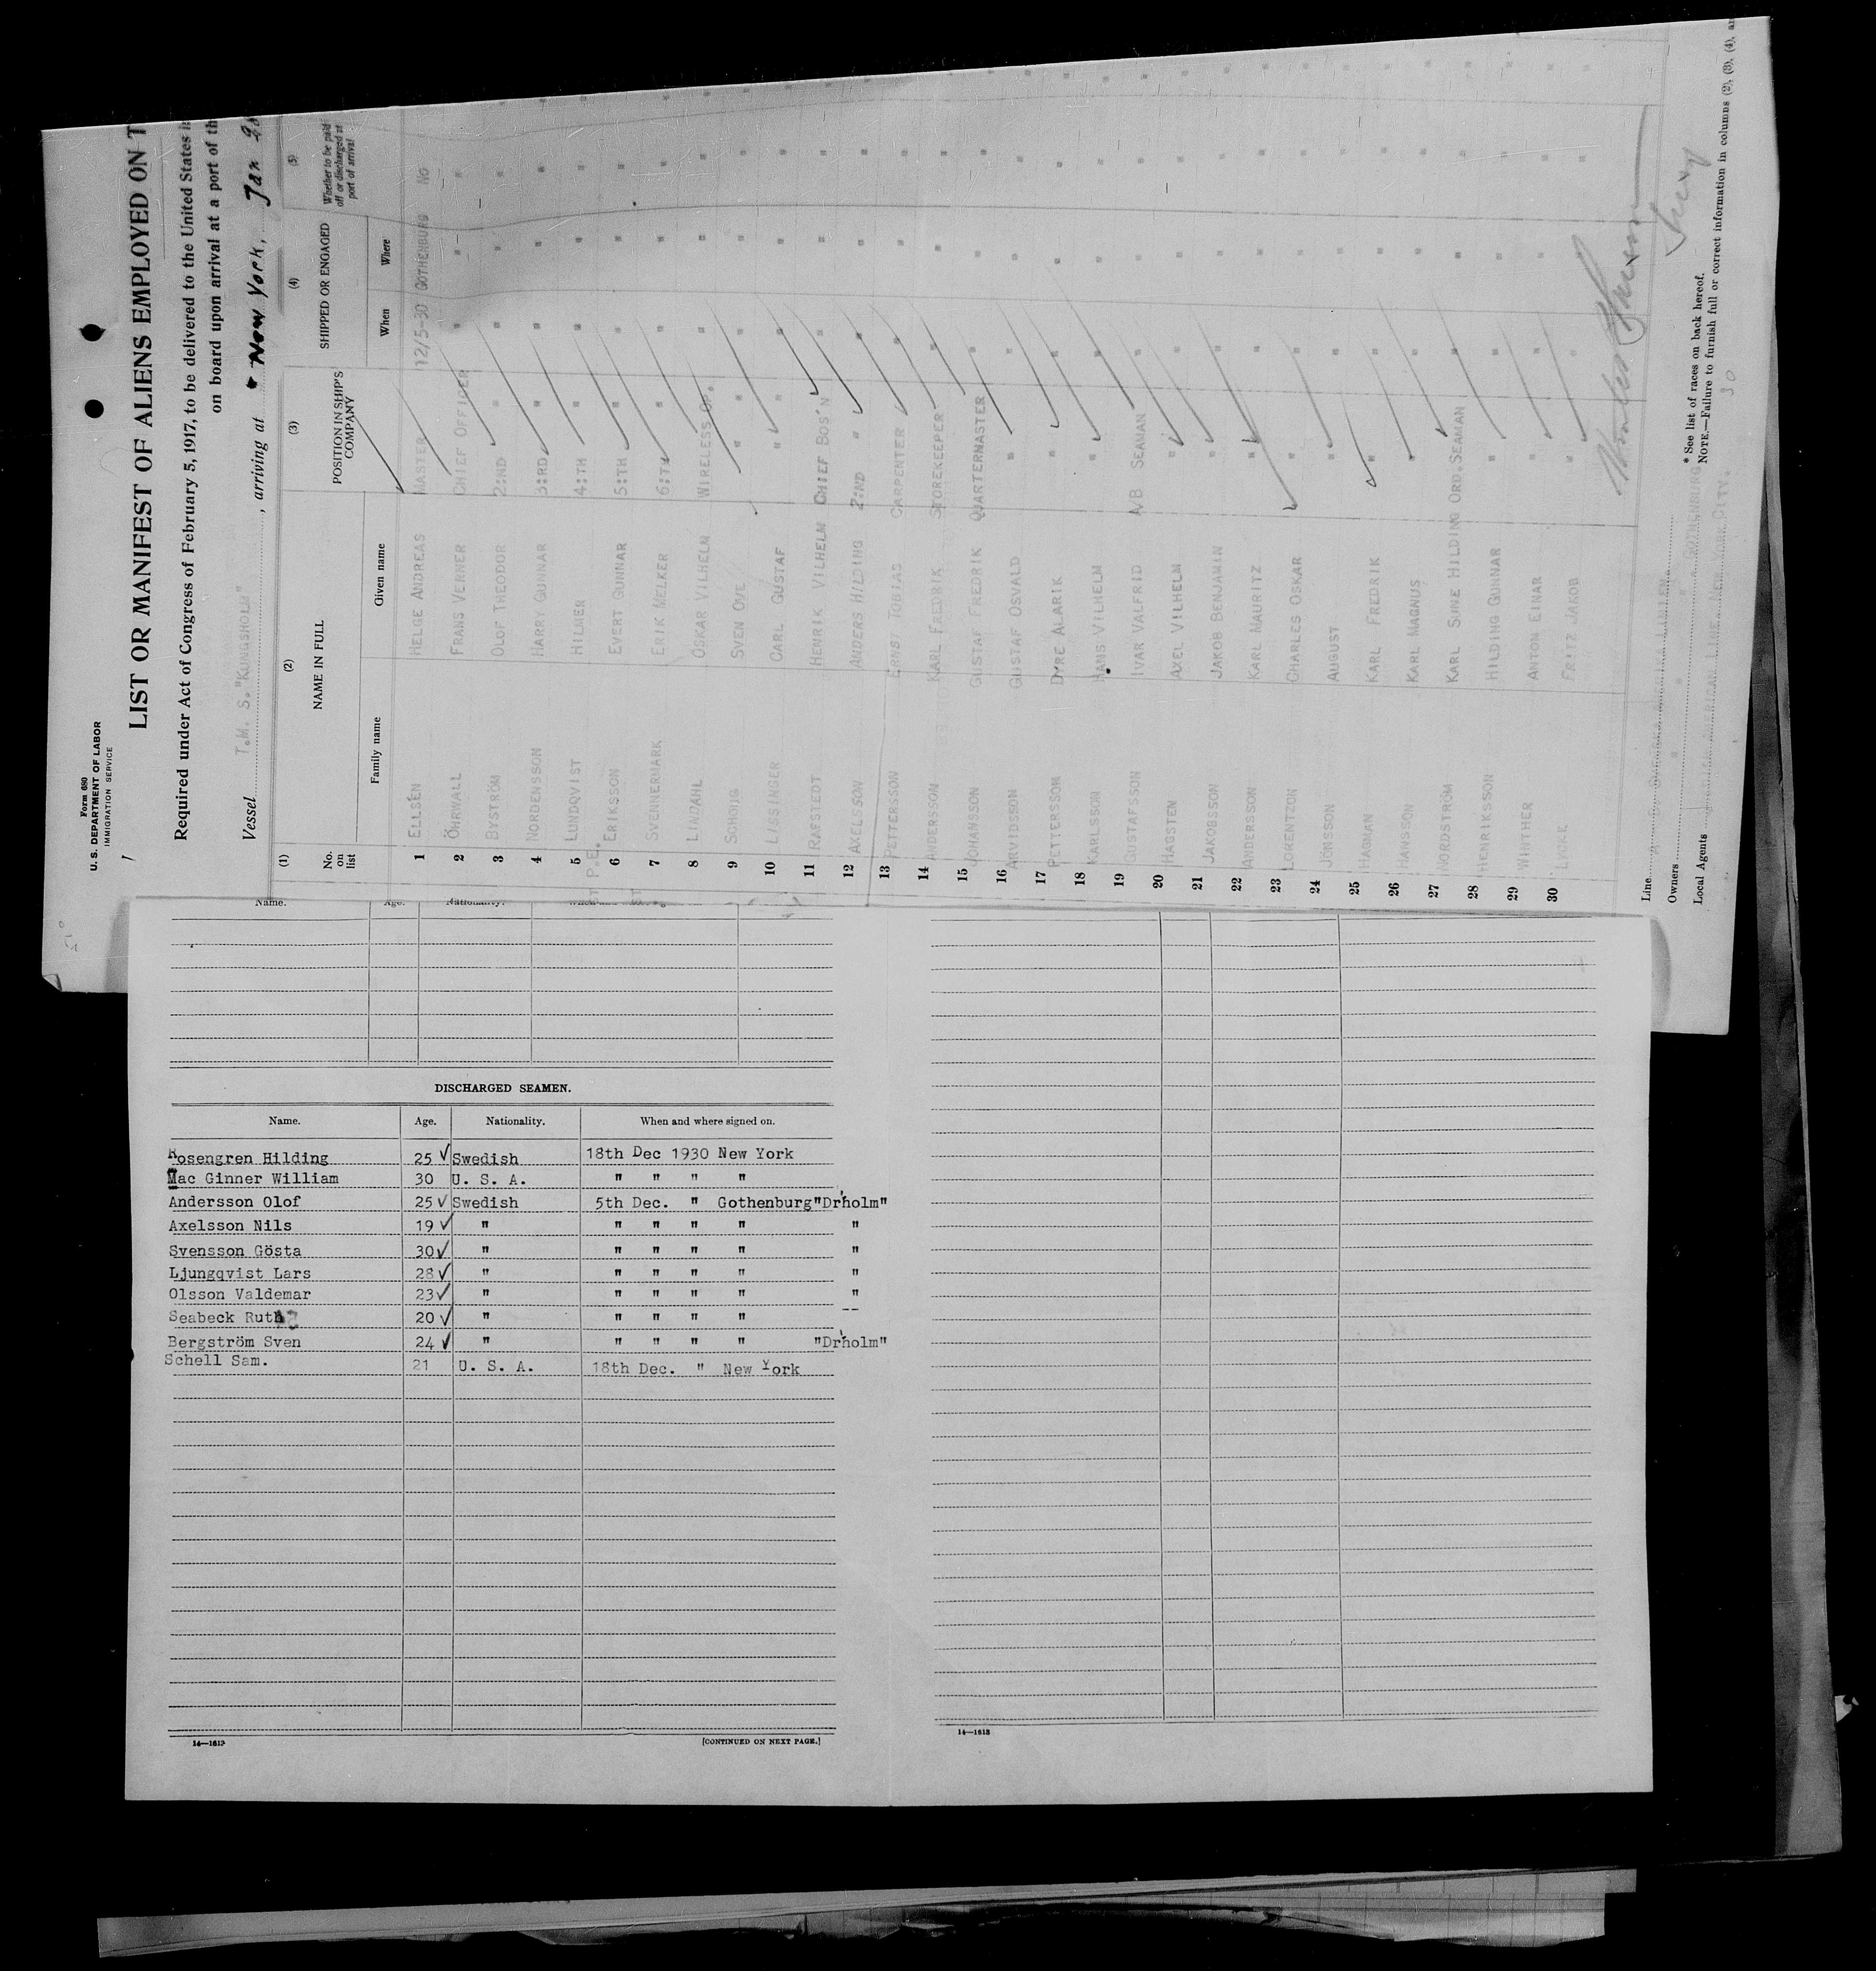 Form 680
U. S. DEPARTMENT OF LABOR
IMMIGRATION SERVICE
LIST OR MANIFEST OF ALIENS EMPLOYED ON T
Required under Act of Congress of February 5, 1917, to be delivered to the United States i
on board upon arrival at a port of th
Vessel T.M. S. "KUNGSHOLM", arriving at New York, Jan
(1) (2) (3) (4) (5)
No. on list NAME IN FULL POSITION IN SHIP'S COMPANY SHIPPED OR ENGAGED Whether to be paid off or discharged at port of arrival
Family name Given name When Where
1 ELLSÉN HELGE ANDREAS MASTER 12/5-30 GOTHENBURG NO
2 ÖHRWALL FRANS VERNER CHIEF OFFICER " " "
3 BYSTRÖM OLOF THEODOR 2:ND " " " "
4 NORDENSSON HARRY GUNNAR 3:RD " " " "
5 LUNDQVIST HILMER 4:TH " " " "
6 ERIKSSON EVERT GUNNAR 5:TH " " " "
7 SVENNERMARK ERIK MELKER 6:TH " " "
8 LINDAHL OSKAR VILHELM WIRELESS OP. " " "
9 SVEN OVE " " " " "
10 LISSINGER CARL GUSTAF " " " " "
11 RAFSTEDT HENRIK VILHELM CHIEF BOS'N " "
12 AXELSSON ANDERS HILDING 2:ND " " " "
13 PETTERSSON ERNST TOBIAS CARPENTER " " "
14 ANDERSSON KARL FREDRIK STOREKEEPER " " "
15 JOHANSSON GUSTAF FREDRIK QUARTERMASTER " " "
16 ARVIDSSON GUSTAF OSVALD " " " "
17 PETTERSSON DYRE ALARIK " " " "
18 KARLSSON HANS VILHELM " " " "
19 GUSTAFSSON IVAR VALFRID A/B SEAMAN " " "
20 HAGSTEN AXEL VILHELM " " " "
21 JAKOBSSON JAKOB BENJAMIN " " " "
22 ANDERSSON KARL MAURITZ " " " "
23 LORENTZON CHARLES OSKAR " " " "
24 JONSSON AUGUST " " " "
25 HAGMAN KARL FREDRIK " " " "
26 HANSSON KARL MAGNUS " " " "
27 NORDSTRÖM KARL SUNE HILDING ORD.SEAMAN " " "
28 HENRIKSSON HILDING GUNNAR " " " "
29 WINTHER ANTON EINAR " " " "
30 LYCKE FRITZ JAKOB " " " "
Line
Owners
Local Agents AMERICAN LINE, NEW YORK CITY.
* See list of races on back hereof.
NOTE.—Failure to furnish full or correct information in columns (2), (3), (4),
Name. Age. Nationality.
DISCHARGED SEAMEN.
Name. Age. Nationality. When and where signed on.
Rosengren Hilding 25 ✓ Swedish 18th Dec 1930 New York
Mac Ginner William 30 U. S. A. " " " "
Andersson Olof 25 ✓ Swedish 5th Dec. " Gothenburg "Dr'holm"
Axelsson Nils 19 ✓ " " " " " "
Svensson Gösta 30 ✓ " " " " " "
Ljungqvist Lars 28 ✓ " " " " " "
Olsson Valdemar 23 ✓ " " " " " "
Seabeck Ruth 20 ✓ " " " " " --
Bergström Sven 24 ✓ " " " " " "Dr'holm"
Schell Sam. 21 U. S. A. 18th Dec. " New York
14—1613 [CONTINUED ON NEXT PAGE.]
14—1613